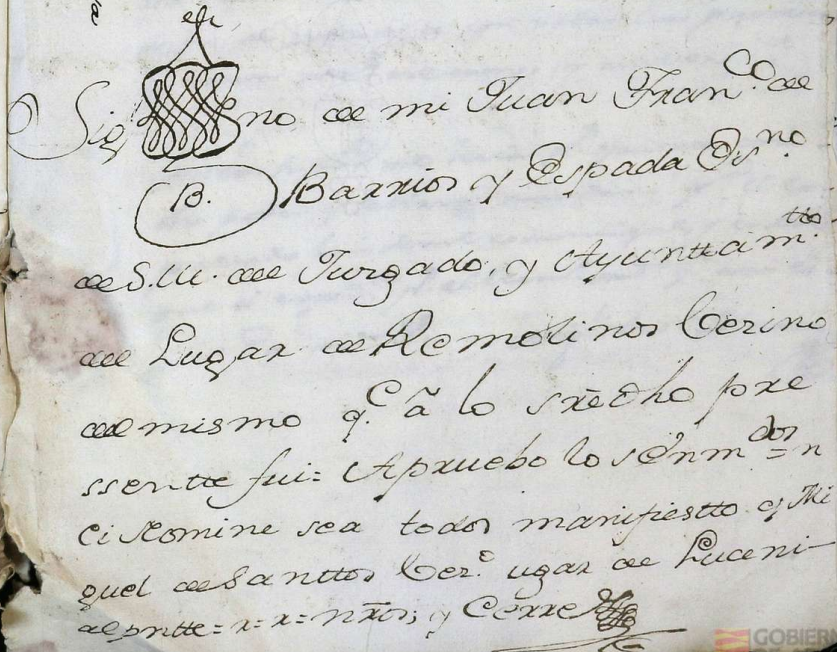 Sig no de mi Juan Fran.co de
B. Barrios y Espada Es.no
de S.M. de Juzgado, y Ayunttam.tto
de Lugar de Remolinos Vecino
de mismo q.e a lo sredho pre
ssentte fui= Apruebo lo sen.m.dos = n
ci Nomine sea todos manifiestto q Mi
guel de Santtos Vez.o ugar de Luceni-
de pntte = x = x = nros; y Cerre
GOBIERN